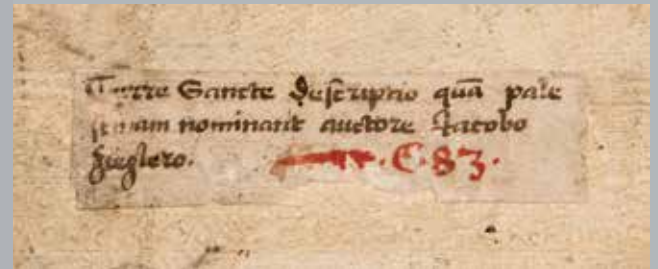 Terre Sancte descriptio quā pale
stinam nominant auctore Iacobo
zieglero. C. 83.